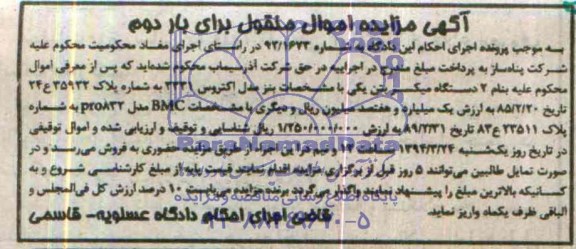 آگهی مزایده اموال منقول برای بار دوم
به موجب پرونده اجرای احکام این دادگاه به شماره ۹۳/۱۶۷۳ در راستای اجرای مفاد محکومیت محکوم علیه
شرکت پناه‌ساز به پرداخت مبلغ مندرج در اجرائیه در حق شرکت آذرسیماب محکوم شده‌اید که پس از معرفی اموال
محکوم علیه بنام ۲ دستگاه میکسر بتن یکی با مشخصات بنز مدل اکتروس ۳۳۴۱ به شماره پلاک ۳۵۹۳۲ ع ۲۴
تاریخ ۸۵/۲/۲۰ به ارزش یک میلیارد و هفتصد میلیون ریال و دیگری با مشخصات BMC مدل pro۸۳۲ به شماره
پلاک ۲۳۵۱۱ ع ۸۳ تاریخ ۸۹/۳/۳۱ به ارزش ۱/۲۵۰/۰۰۰/۰۰۰ ریال شناسایی و توقیف و ارزیابی شده و اموال توقیفی
در تاریخ روز یکشنبه ۱۳۹۴/۳/۲۴ ساعت ۱۲ و دایره اجرا از طریق مزایده حضوری به فروش می‌رسد و در
صورت تمایل طالبین می‌توانند ۵ روز قبل از برگزاری مزایده اقدام نمایند قیمت پایه از مبلغ کارشناسی شروع و به
کسانیکه بالاترین مبلغ را پیشنهاد نمایند واگذار می‌گردد برنده مزایده می‌بایست ۱۰ درصد ارزش کل فی‌المجلس و
الباقی ظرف یکماه واریز نماید.
قاضی اجرای احکام دادگاه عسلویه- قاسمی
پایگاه اطلاع رسانی مناقصه و مزایده